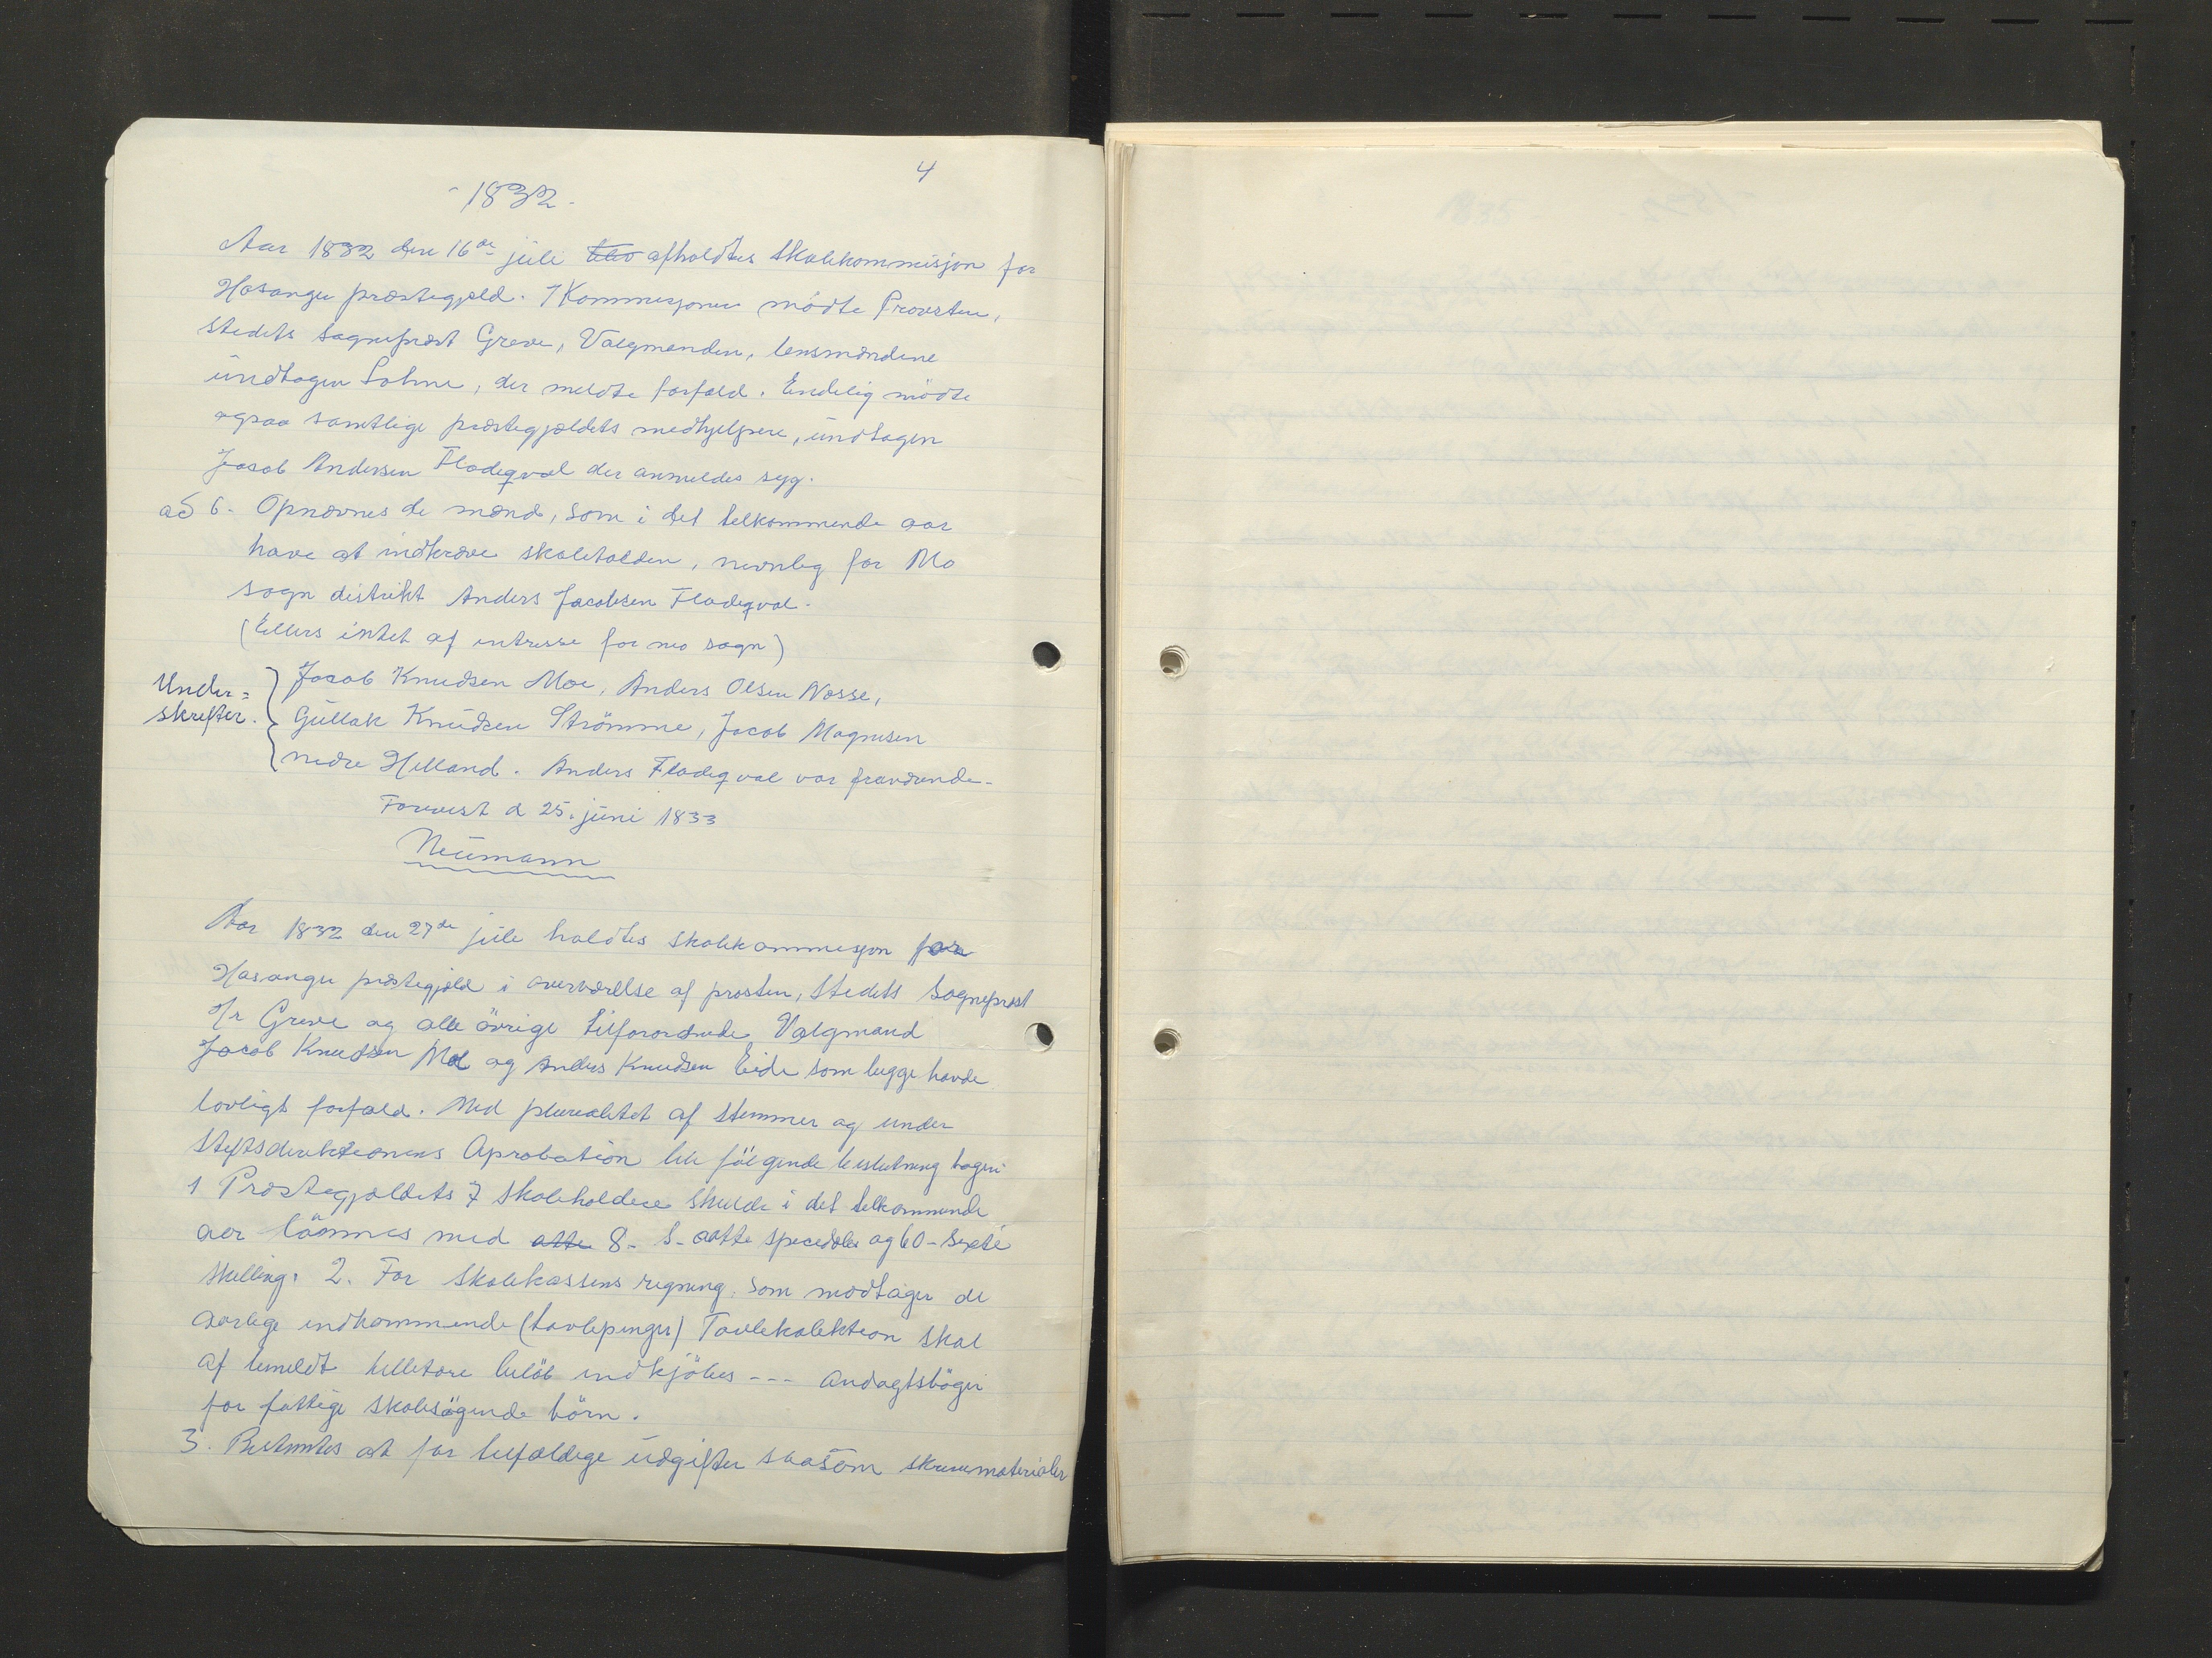 4
- 1832 -
Aar 1832 den 16de juli blev afholdtes skolekommisjon for
Hosanger præstegjæld. I Kommisjonen mödte Provsten,
stedets sogneprest Greve, Valgmenden, lensmændene
undtagen Sohne, der meldte forfald. Endelig mödte
ogsaa samtlige præstegjældets medhjelpere, undtagen
Jacob Andersen Fladeqval der anmeldes syg.
ad 6 - Opnævnes de mænd, som i det telkommende aar
have at indkræve skoletolden, nevnleg for Mo
sogn distrikt Anders Jacobsen Fladeqval.
(Ellers intet af intresse for mo sogn)
Under=
skrifter.
Jacob Knudsen Moe, Anders Olsen Nosse,
Gullak Knudsen Strömme, Jacob Magnusen
nedre Helland. Anders Fladeqval var fraværende -
Forevist d 25. juni 1833
Neumann
Aar 1832 den 27de juli holdtes skolekommesjon for
Hosanger præstegjæld i overværelse af prosten, Stedets Sogneprest
Hr Greve og alle övrige tilforordnede Valgmænd
Jacob Knudsen Mo og Anders Knudsen Eide som begge havde
lovligt forfald. Med pluralitet af stemmer og under
Stiftsdirektionens Aprobation blev fölgende beslutning tagen
1 Præstegjældets 7 skoleholdere skulde i det telkommende
aar lönnes med atte 8 - S - aatte specidaler og 60 - sexti
skelling. 2. For skolekassens regning som modtager de
aarlege indkommende (tavlepenger) Tavlekolektion skal
af bemeldt belöb indkjöbes --- andagtsböger
for fattige skolesögende börn.
3. Bestemtes at for tilfældige udgifter saasom skrivematerialer